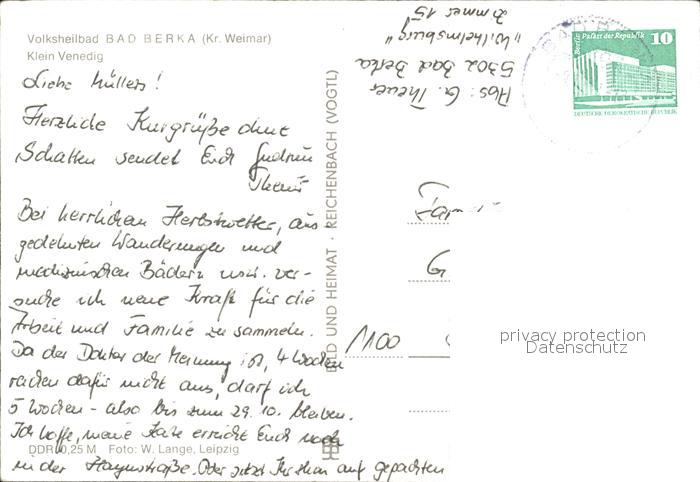 Volksheilbad BAD BERKA (Kr. Weimar)
Klein Venedig
Liebe Müllers!
Herzliche Kurgrüße ohne
Schatten sendet Euch Gudrun
Bei herrlichem Herbstwetter, aus
gedehnten Wanderungen und
medizinischen Bädern usw. ver-
suche ich neue Kraft für die
Arbeit und Familie zu sammeln.
Da der Doktor der Meinung ist, 4 Wochen
reichen dafür nicht aus, darf ich
5 Wochen - also bis zum 29.10. bleiben.
Ich hoffe, meine Karte erreicht Euch noch
in der Haynstraße. Oder sitzt Ihr schon auf gepackten
DDR 0,25 M Foto: W. Lange, Leipzig
BILD UND HEIMAT · REICHENBACH (VOGTL)
Abs: G. Theuer
5302 Bad Berka
"Wilhelmsburg"
Zimmer 15
Berlin, Palast der Republik 10
DEUTSCHE DEMOKRATISCHE REPUBLIK
Fam
G
1100
privacy protection
Datenschutz